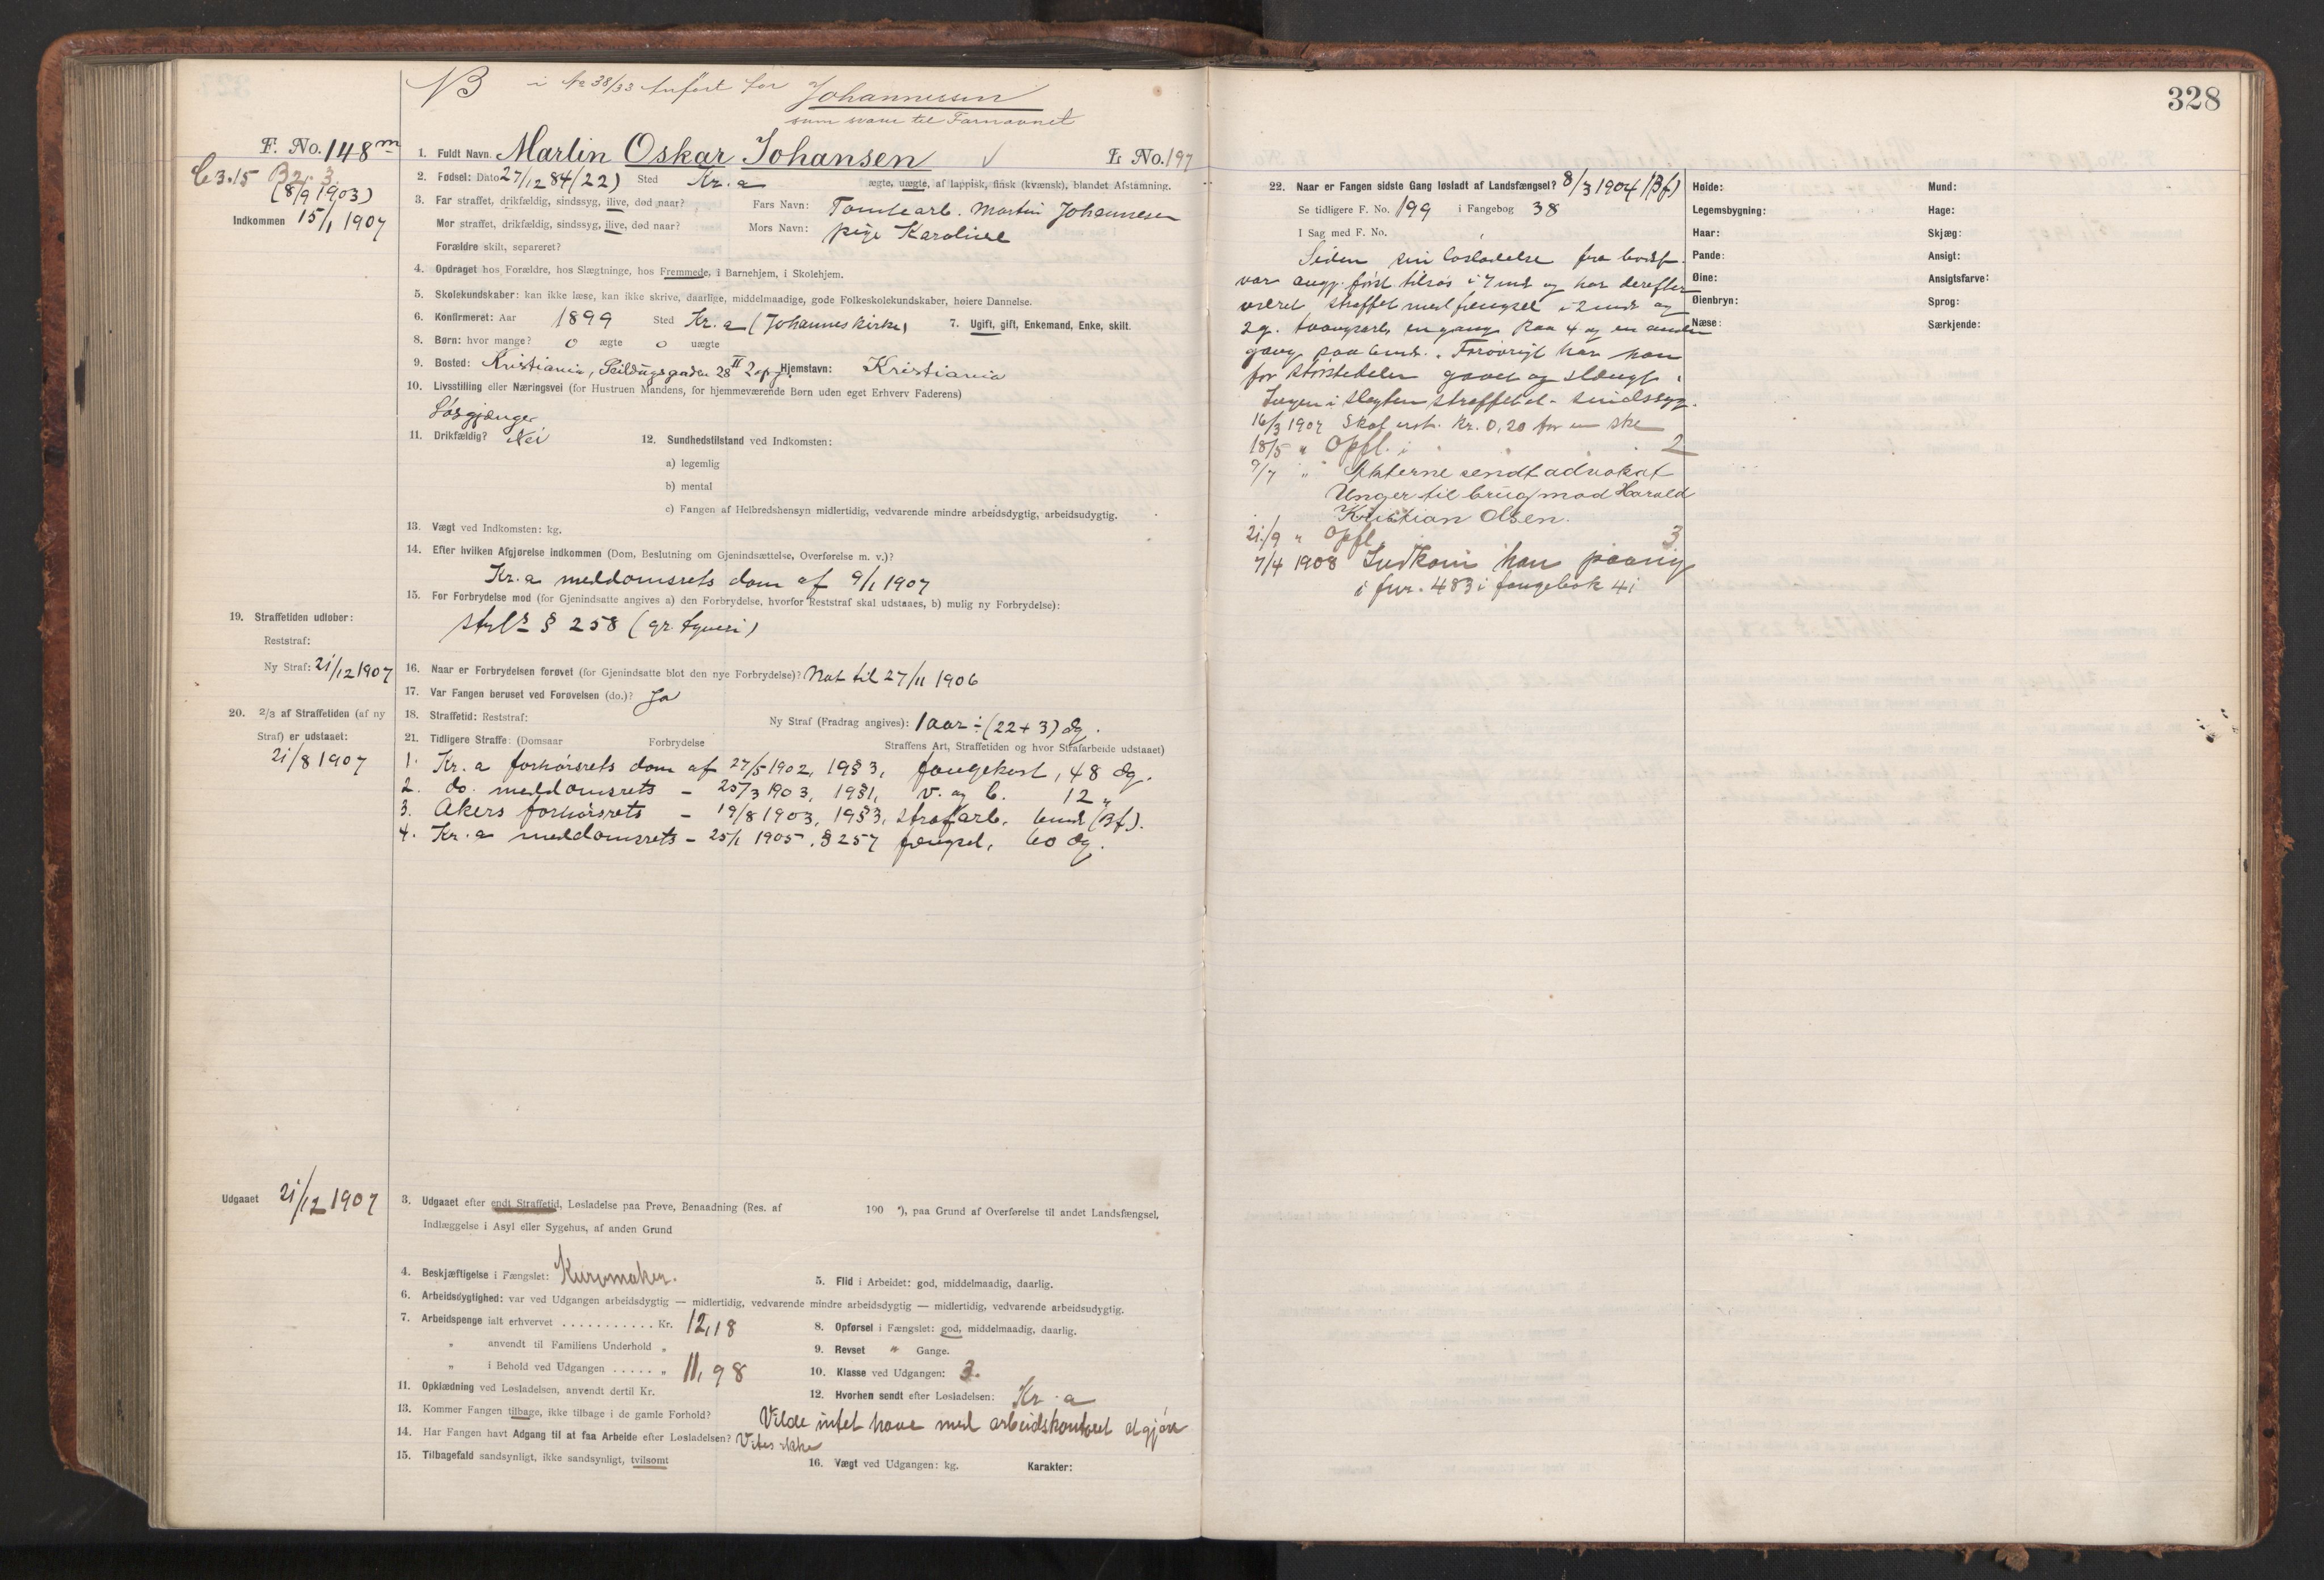 328
NB i No 38/33 anført for Johannessen
som svarer til Farnavnet
F. No. 148 m
C 3.15 B 2. 3.
(8/9 1903)
Indkommen 15/1 1907
1. Fuldt Navn Martin Oskar Johansen L No. 197
2. Fødsel: Dato 27/12 84 (22) Sted Kr.a ægte, uægte, af lappisk, finsk (kvænsk), blandet Afstamning.
3. Far straffet, drikfældig, sindssyg, ilive, død naar? Fars Navn: Tomtearb. Martin Johannesen
Mor straffet, drikfældig, sindssyg, ilive, død naar? Mors Navn: pige Karoline
Forældre skilt, separeret?
4. Opdraget hos Forældre, hos Slægtninge, hos Fremmede, i Barnehjem, i Skolehjem.
5. Skolekundskaber: kan ikke læse, kan ikke skrive, daarlige, middelmaadige, gode Folkeskolekundskaber, høiere Dannelse.
6. Konfirmeret: Aar 1899 Sted Kr.a (Johanneskirke) 7. Ugift, gift, Enkemand, Enke, skilt.
8. Børn: hvor mange? 0 ægte 0 uægte
9. Bosted: Kristiania, Seildugsgaden 28 II 2 opg. Hjemstavn: Kristiania
10. Livsstilling eller Næringsvei (for Hustruen Mandens, for hjemmeværende Børn uden eget Erhverv Faderens)
Løsgjænger
11. Drikfældig? Nei 12. Sundhedstilstand ved Indkomsten:
a) legemlig
b) mental
c) Fangen af Helbredshensyn midlertidig, vedvarende mindre arbeidsdygtig, arbeidsudygtig.
13. Vægt ved Indkomsten: kg.
14. Efter hvilken Afgjørelse indkommen (Dom, Beslutning om Gjenindsættelse, Overførelse m. v.)?
Kr.a meddomsrets dom af 9/1 1907
15. For Forbrydelse mod (for Gjenindsatte angives a) den Forbrydelse, hvorfor Reststraf skal udstaaes, b) mulig ny Forbrydelse):
strl § 258 (gr. tyveri)
19. Straffetiden udløber:
Reststraf:
Ny Straf: 21/12 1907
16. Naar er Forbrydelsen forøvet (for Gjenindsatte blot den nye Forbrydelse)? Nat til 27/11 1906
17. Var Fangen beruset ved Forøvelsen (do.)? Ja
18. Straffetid: Reststraf: Ny Straf (Fradrag angives): 1 aar ÷ (22 + 3) dg.
20. 2/3 af Straffetiden (af ny
Straf) er udstaaet:
21/8 1907
21. Tidligere Straffe: (Domsaar Forbrydelse Straffens Art, Straffetiden og hvor Strafarbeide udstaaet)
1. Kr.a forhørsrets dom af 27/5 1902, 19 § 3, fangekost, 48 dg.
2. do. meddomsrets – 25/3 1903, 19 § 1, v. og b. 12 "
3. Akers forhørsrets – 19/8 1903, 19 § 3, strafarb. 6 mdr (Bf).
4. Kr.a meddomsrets – 25/1 1905. § 257 fængsel, 60 dg.
Udgaaet 21/12 1907
3. Udgaaet efter endt Straffetid, Løsladelse paa Prøve, Benaadning (Res. af 190 ), paa Grund af Overførelse til andet Landsfængsel,
Indlæggelse i Asyl eller Sygehus, af anden Grund
4. Beskjæftigelse i Fængslet: Kurvmaker. 5. Flid i Arbeidet: god, middelmaadig, daarlig.
6. Arbeidsdygtighed: var ved Udgangen arbeidsdygtig — midlertidig, vedvarende mindre arbeidsdygtig — midlertidig, vedvarende arbeidsudygtig.
7. Arbeidspenge ialt erhvervet . . . . . . . . . . . Kr. 12,18 8. Opførsel i Fængslet: god, middelmaadig, daarlig.
" anvendt til Familiens Underhold " 9. Revset " Gange.
" i Behold ved Udgangen . . . . . " 11,98 10. Klasse ved Udgangen: 3.
11. Opklædning ved Løsladelsen, anvendt dertil Kr. 12. Hvorhen sendt efter Løsladelsen: Kr.a
13. Kommer Fangen tilbage, ikke tilbage i de gamle Forhold? Vilde intet have med arbeidskontoret at gjøre
14. Har Fangen havt Adgang til at faa Arbeide efter Løsladelsen? Vites ikke
15. Tilbagefald sandsynligt, ikke sandsynligt, tvilsomt 16. Vægt ved Udgangen: kg. Karakter:
22. Naar er Fangen sidste Gang løsladt af Landsfængsel? 8/3 1904 (Bf)
Se tidligere F. No. 199 i Fangebog 38
I Sag med F. No.
Siden sin løsladelse fra bodsf.
var angj. først tilsøs i 7 mdr og har derefter
været straffet med fængsel i 2 mdr og
2 g. tvangsarb. en gang paa 4 og en anden
gang paa 6 mdr. Forøvrigt har han
for størstedelen gaaet og slængt.
Ingen i slegten straffet el. sindssyg.
16/3 1907 Skal erst. Kr. 0,20 for en ske
18/5 " Opfl. i 2
9/7 " Akterne sendt advokat
Unger til brug mod Harald
Kristian Olsen.
21/9 " Opfl. 3
7/4 1908 Indkom han paany
i fnr. 483 i fangebok 41
Høide:
Legemsbygning:
Haar:
Pande:
Øine:
Øienbryn:
Næse:
Mund:
Hage:
Skjæg:
Ansigt:
Ansigtsfarve:
Sprog:
Særkjende: